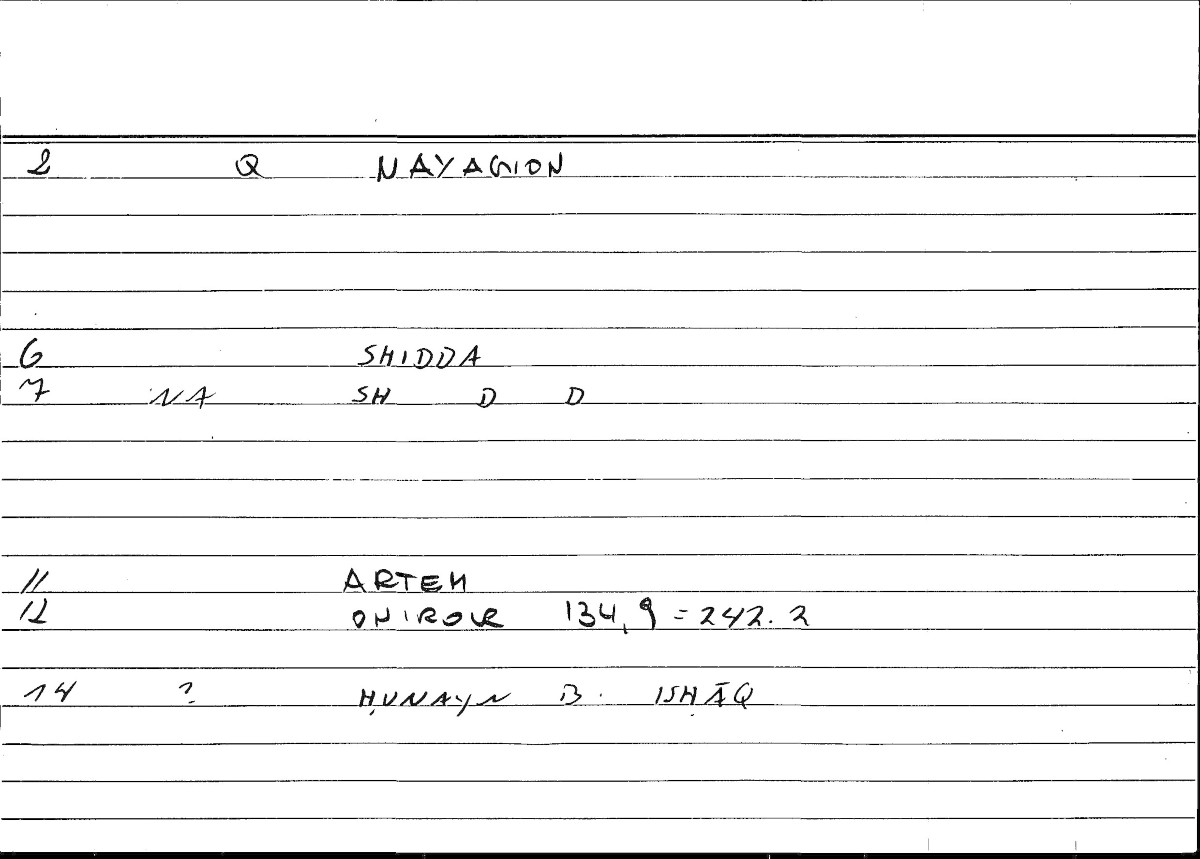 2 Q NAYAGION
6 SHIDDA
7 NA SH D D
11 ARTEM
12 ONIROCR 134,9 = 242.2
14 ? ḤUNAYN B. ISḤĀQ